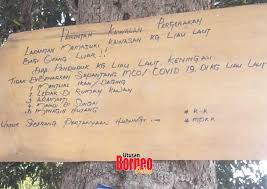 PERINTAH KAWALAN PERGERAKAN
LARANGAN MEMASUKI KAWASAN KG LIAU LAUT
BAGI ORANG LUAR !!
DRP. PENDUDUK KG LIAU LAUT. KENINGAU
TIDAK DIBENARKAN SEPANJANG MCO/COVID 19. DI KG LIAU LAUT
1. MENJUAL IKAN/DAGING
2. LEPAK DI RUMAH KAWAN
3.
4. MANDI DI SUNGAI
5. MINGIN HUTANG
UNTUK SEBARANG PERTANYAAN HUBUNGI :- * K.K
* MPKK
Utusan
Borneo